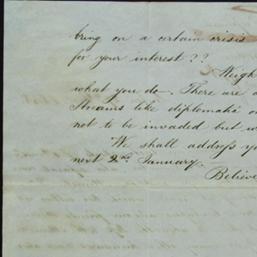 bring on a certain crisis
for your interest??
Weigh
what you do. There are
like diplomatic
not to be invaded but
We shall address
next 2nd January.
Believe